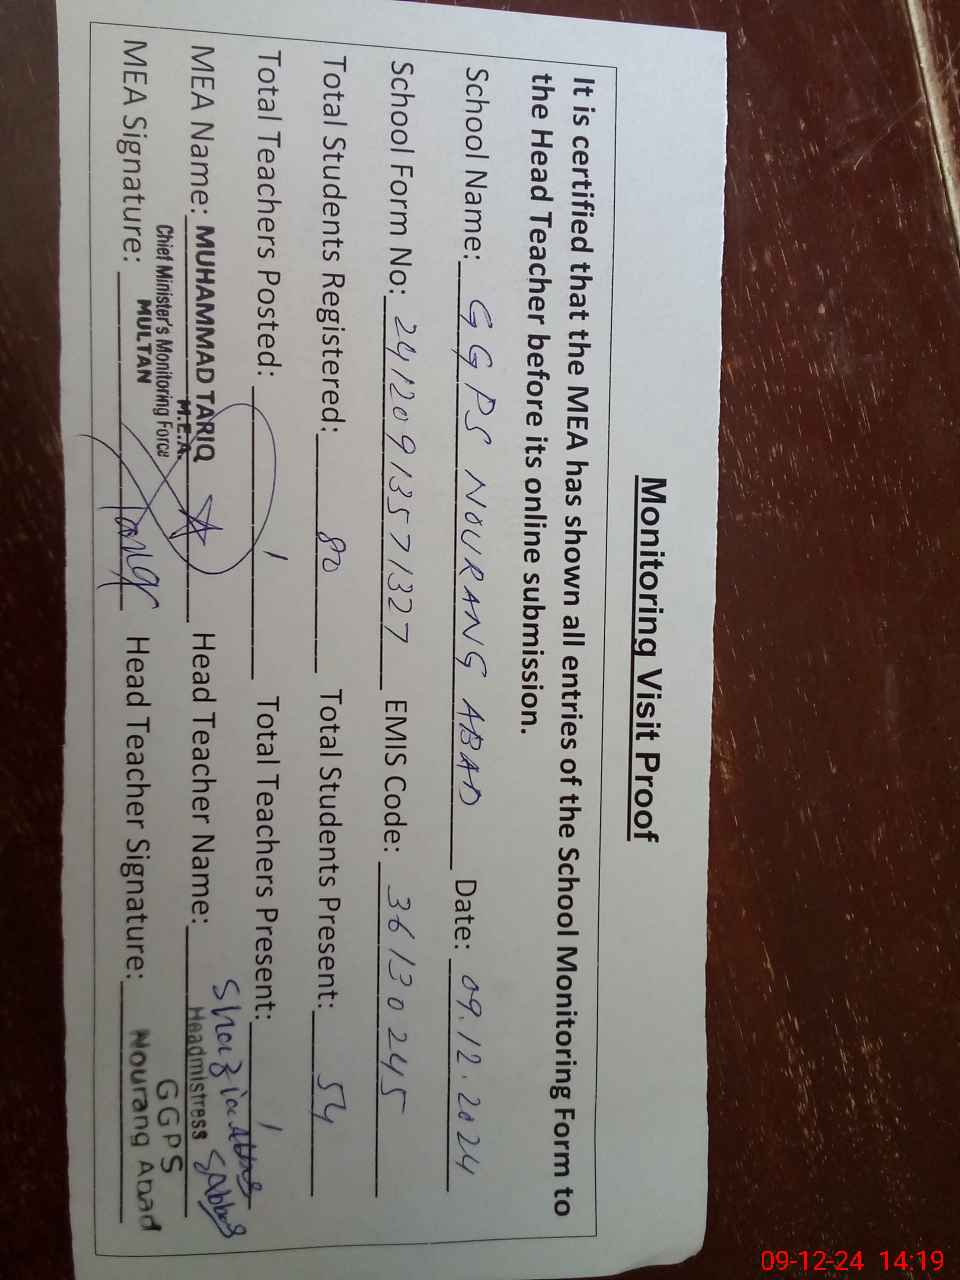 Monitoring Visit Proof
It is certified that the MEA has shown all entries of the School Monitoring Form to
the Head Teacher before its online submission.
School Name: GGPS NOURANG ABAD Date: 09.12.2024
School Form No: 24120913571327 EMIS Code: 36130245
Total Students Registered: 80 Total Students Present: 54
Total Teachers Posted: 1 Total Teachers Present: 1
MEA Name: MUHAMMAD TARIQ Head Teacher Name: Shazia
M.E.A. Headmistress
Chief Minister's Monitoring Force GGPS
MULTAN Nourang Abad
MEA Signature: Head Teacher Signature:
09-12-24 14:19